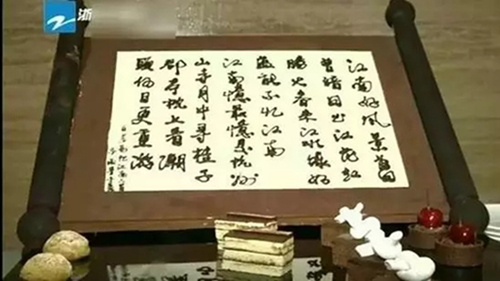 浙
江南好風景舊
曾諳日出江花紅
勝火春来江水綠如
藍能不忆江南
江南憶最憶是杭州
山寺月中尋桂子
郡亭枕上看潮
頭何日更重游